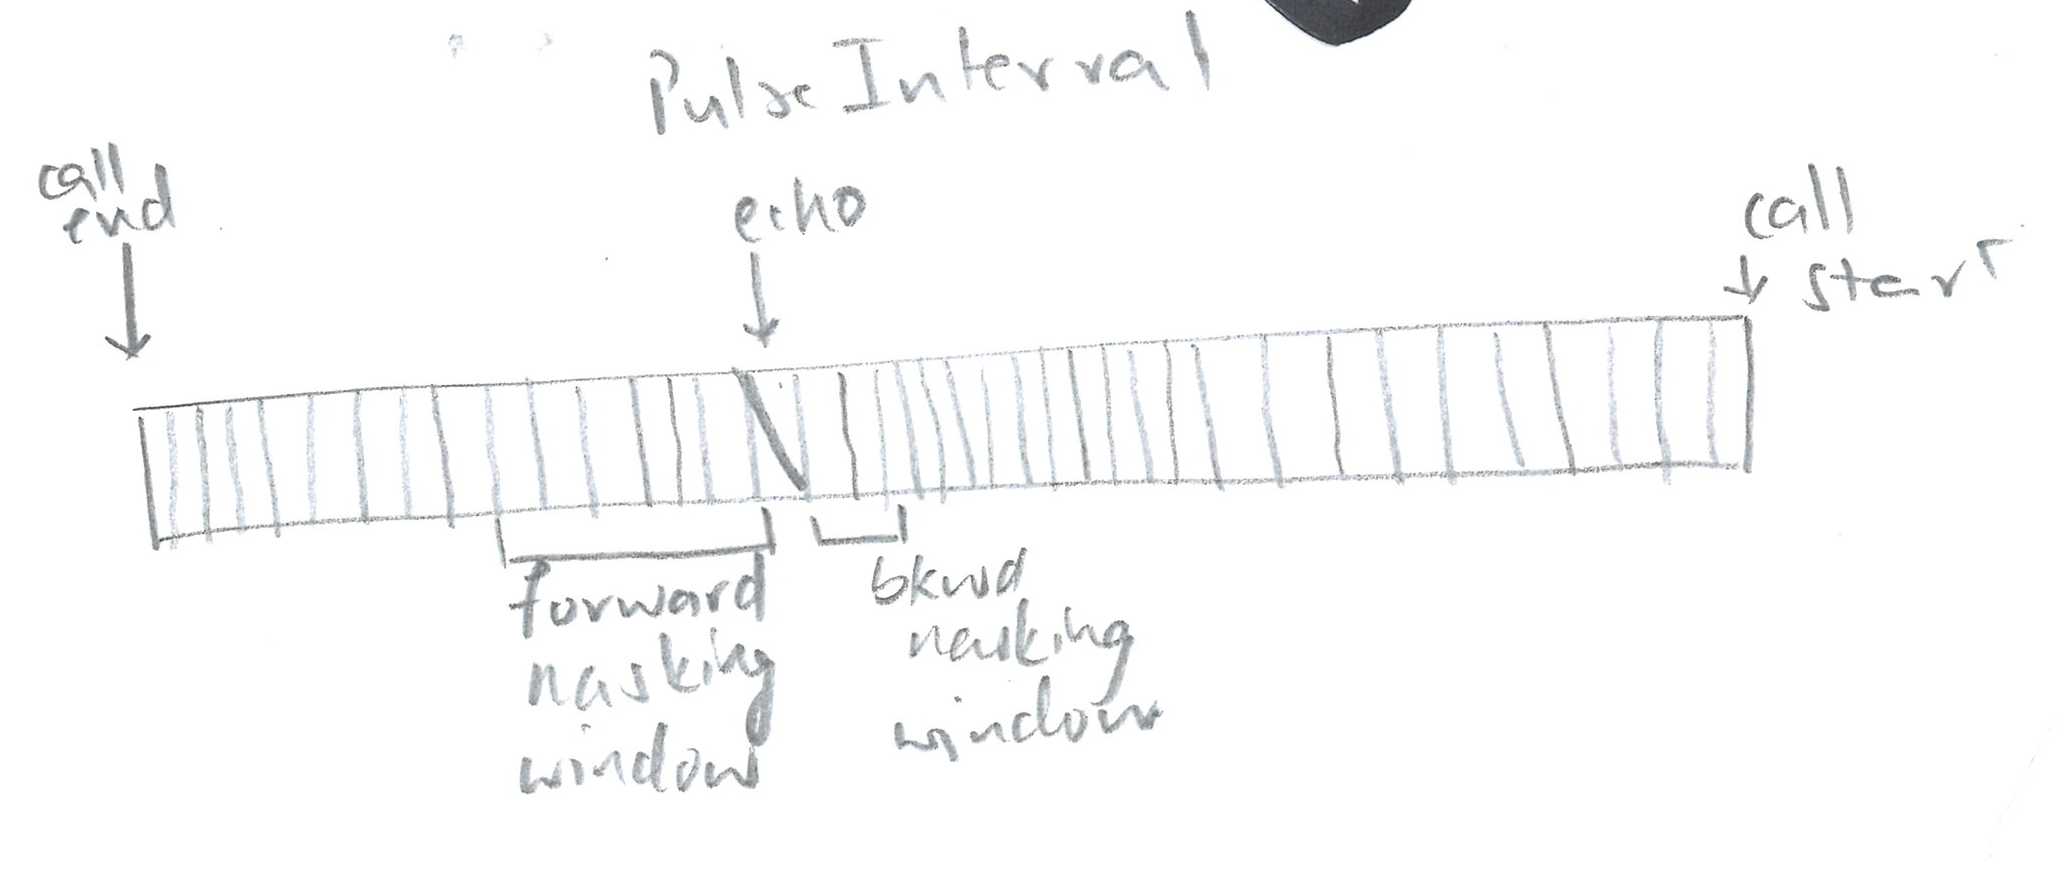 Pulse Interval
call
end
echo
call
start
forward
masking
window
bkwd
masking
window